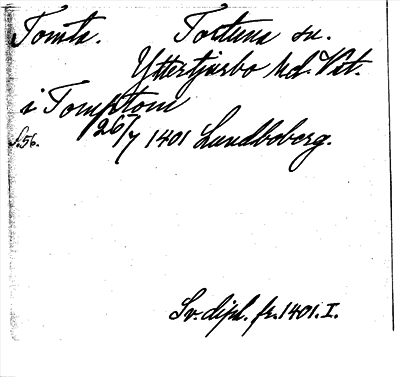 Tomta. Tortuna sn.
Yttertjurbo hd. Vst.
i Tomptom
s. 56. 26/7 1401 Lundboberg.
Sv. dipl. fr. 1401. I.